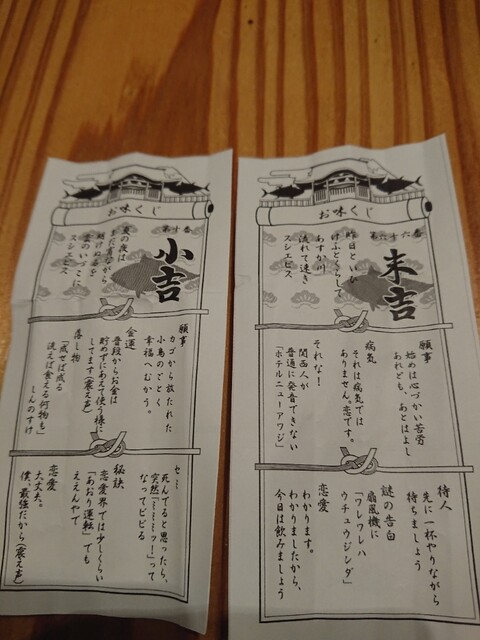 お味くじ
第六十六番
末吉
昨日といひ
けふとくらして
あすか川
流れて速き
スシエビス
願事
始めは心づかい苦労
あれども、あとはよし
病気
それは病気では
ありません。恋です。
それな!
関西人が
普通に発音できない
「ホテルニューアワジ」
待人
先に一杯やりながら
待ちましょう
謎の告白
扇風機に
「ワレワレハ
ウチュウジンダ」
恋愛
わかります。
わかりましたから、
今日は飲みましょう
お味くじ
小吉
夏の夜は
まだ宵ながら
明けぬるを
雲のいづこに
スシエビス
願事
カゴから放たれた
小鳥のごとく
幸福へむかう。
金運
普段からお金は
貯めずにあえて使う様に
してます(震え声)
落し物
「成せば成る
洗えば食える何物も」
しんのすけ
セミ
死んでると思ったら、
突然「ミミミッ!」って
なってビビる
秘訣
恋愛界では少しくらい
「あおり運転」でも
ええんやで
恋愛
大丈夫。
僕、最強だから(震え声)